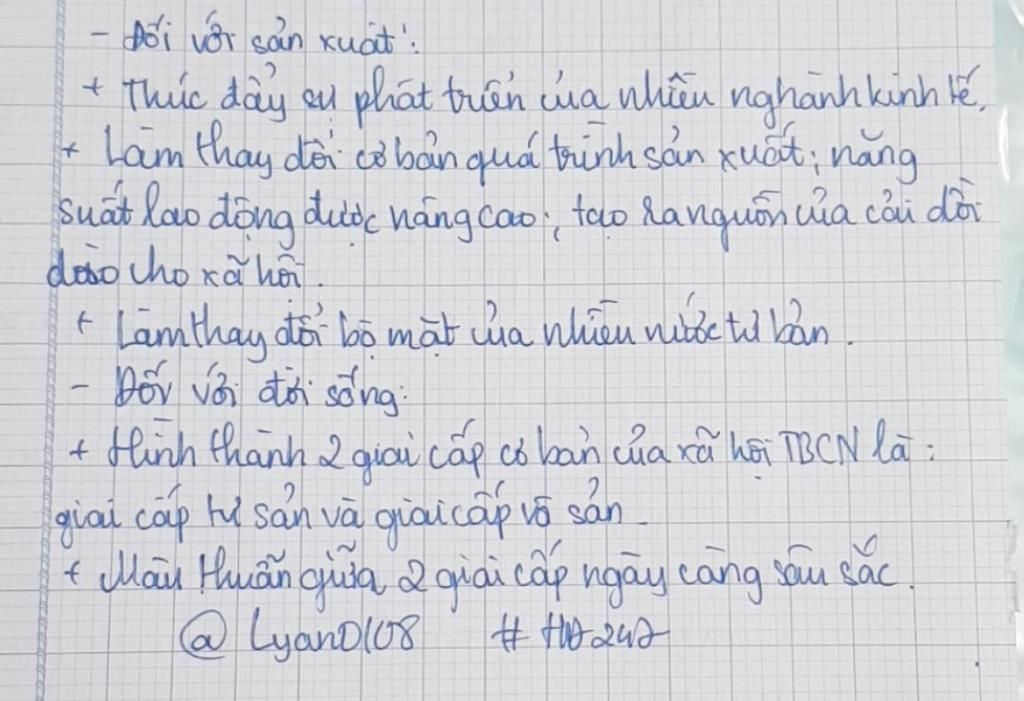 - Đối với sản xuất:
+ Thúc đẩy sự phát triển của nhiều nghành kinh tế.
+ Làm thay đổi cơ bản quá trình sản xuất; năng
suất lao động được nâng cao; tạo ra nguồn của cải dồi
dào cho xã hội.
+ Làm thay đổi bộ mặt của nhiều nước tư bản.
- Đối với đời sống:
+ Hình thành 2 giai cấp cơ bản của xã hội TBCN là:
giai cấp tư sản và giai cấp vô sản.
+ Mâu thuẫn giữa 2 giai cấp ngày càng sâu sắc.
@ Lyan0108 # HD247